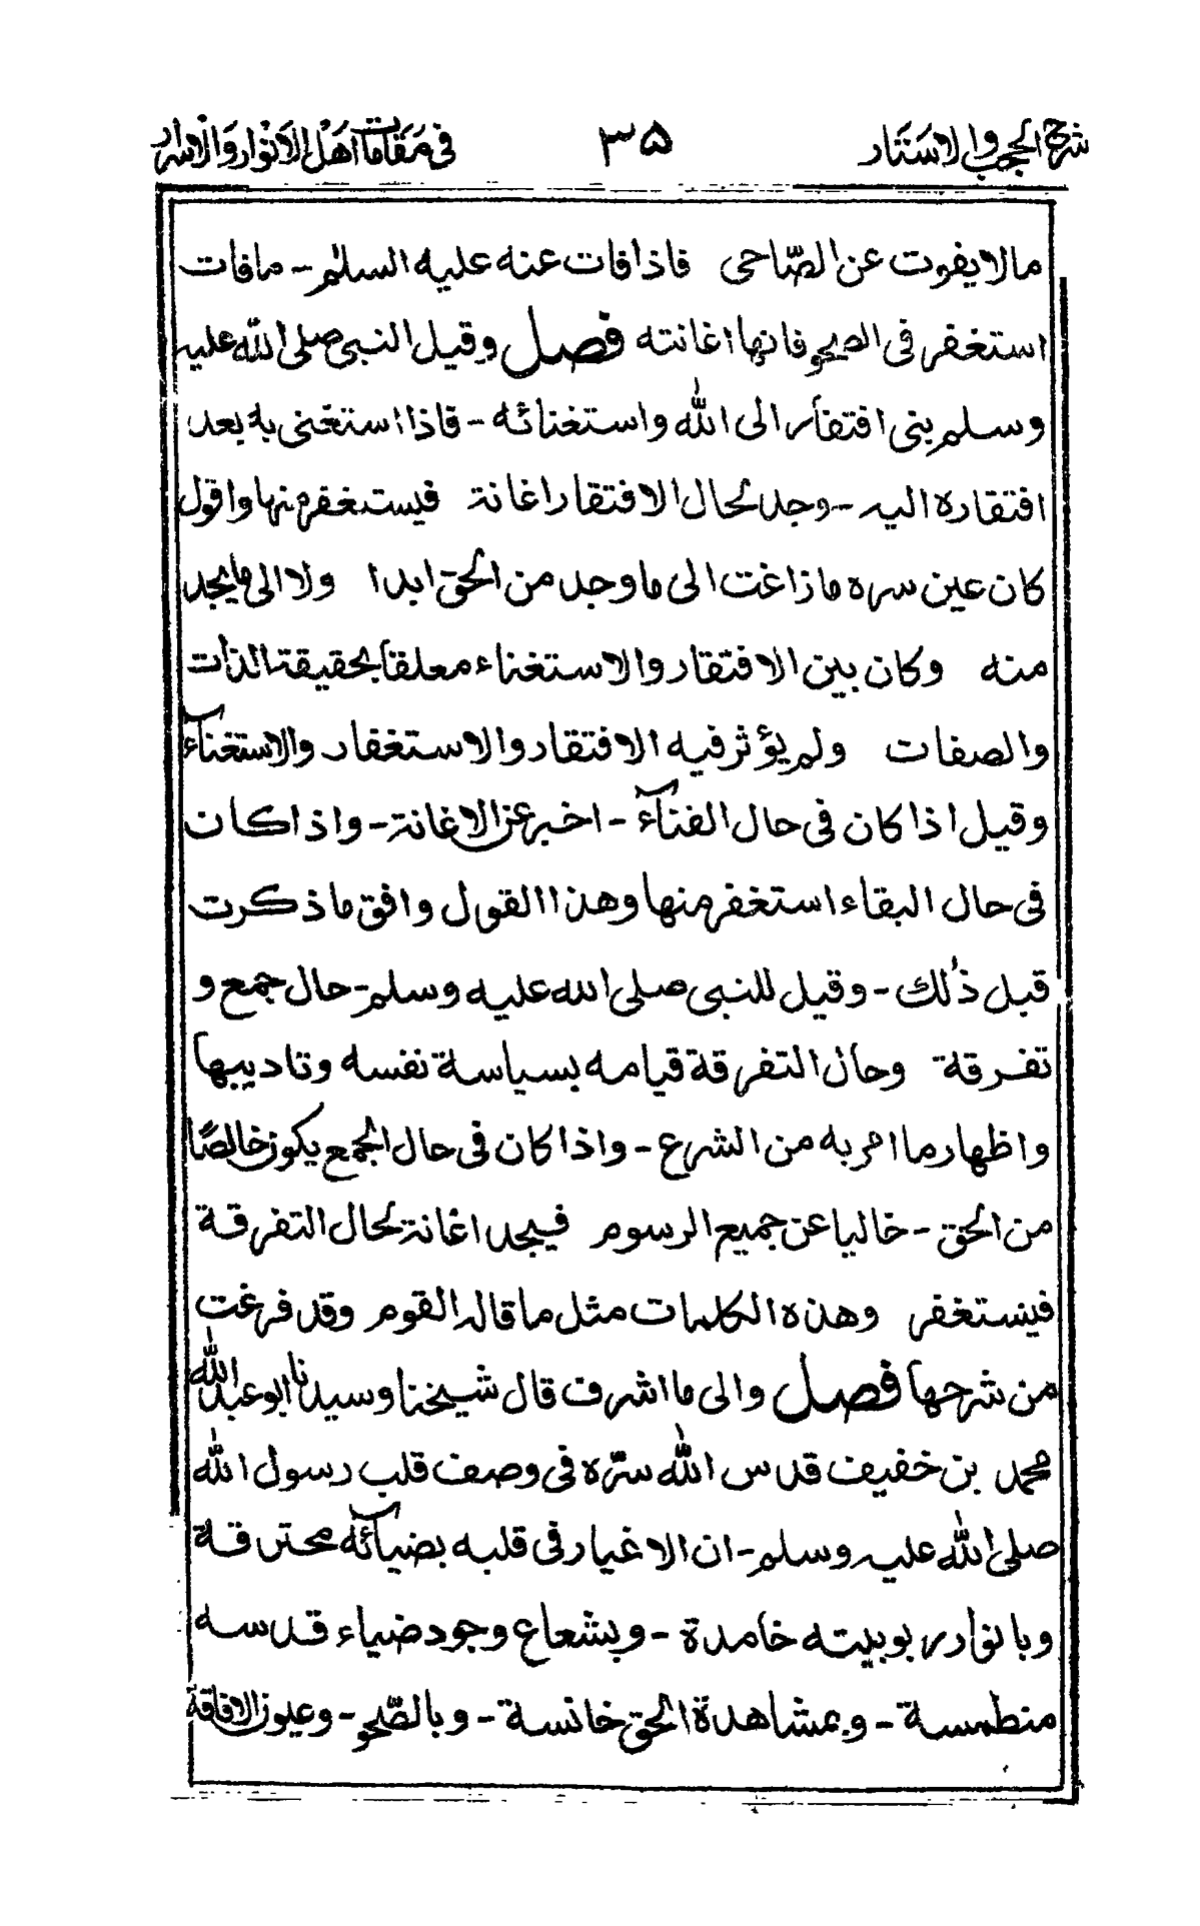 شرح الحجب والاستار ٣٥ فى مقامات اهل الانوار والاسرار
مالا يفوت عن الصّاحى فاذا فات عنه عليه السلام - مافات
استغفر فى الصحو فانها اغانته فصل وقيل النبى صلى الله عليه
وسلم بنى افتقار الى الله واستغنائه - فاذا استغنى به بعد
افتقاره اليه - وجد لحال الافتقار اغانة فيستغفر منها واقول
كان عين سره مازاغت الى ماوجد من الحق ابدا ولا الى مايجد
منه وكان بين الافتقار والاستغناء معلقا بحقيقة الذات
والصفات ولم يؤثر فيه الافتقار والاستغفار والاستغنآء
وقيل اذا كان فى حال الفنآء - اخبر عن الاغانة - واذا كان
فى حال البقاء استغفر منها وهذا القول وافق ماذكرت
قبل ذلك - وقيل للنبى صلى الله عليه وسلم - حال جمع و
تفرقة وحال التفرقة قيامه بسياسة نفسه وتاديبها
واظهار ما امر به من الشرع - واذا كان فى حال الجمع يكون خالصًا
من الحق - خاليا عن جميع الرسوم فيجد اغانة لحال التفرقة
فيستغفر وهذه الكلمات مثل ماقاله القوم وقد فرغت
من شرحها فصل والى ما اشرف قال شيخنا وسيدنا ابو عبد الله
محمد بن خفيف قدس الله سرّه فى وصف قلب رسول الله
صلى الله عليه وسلم - ان الاغيار فى قلبه بضيآئه محترقة
وبانوار ربوبيته خامدة - وبشعاع وجود ضياء قدسه
منطمسة - وبمشاهدة الحق خانسة - وبالصّحو - وعيون الافاقة